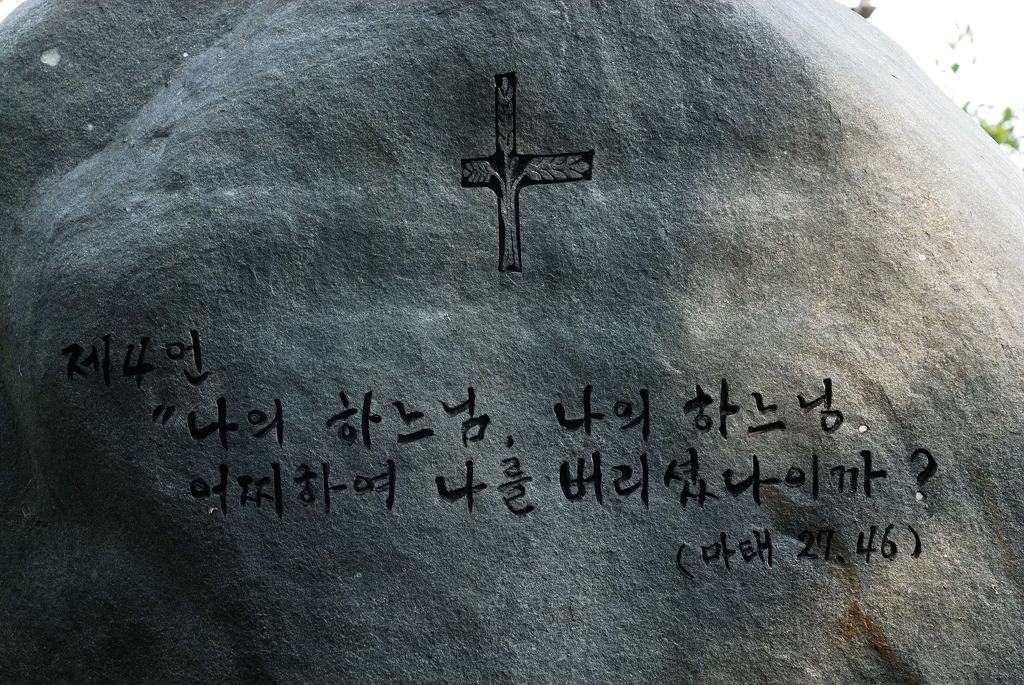 제4언
"나의 하느님, 나의 하느님.
어찌하여 나를 버리셨나이까?
(마태 27.46)